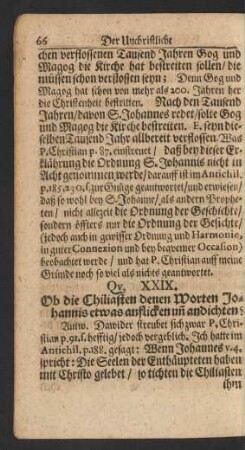 66 Der Unchristliche
chen verflossenen Tausend Jahren Gog und
Magog die Kirche hat bestreiten sollen / die
müssen schon verflossen seyn; Denn Gog und
Magog hat schon von mehr als 200. Jahren her
die Christenheit bestritten. Nach den Tausend
Jahren / davon S. Johannes redet / solte Gog
und Magog die Kirche bestreiten. E. seyn die-
selben Tausend Jahr allbereit verflossen. Was
P. Christian p. 87. einstreuet / daß bey dieser Er-
klährung die Ordnung S. Johannis nicht in
Acht genommen werde / darauff ist im Antichil.
p. 185. 230. s. zur Gnüge geantwortet / und erwiesen /
daß so wohl bey S. Johanne / als andern Prophe-
ten / nicht allezeit die Ordnung der Geschichte /
sondern öffters nur die Ordnung der Gesichte /
(jedoch auch in gewisser Ordnung und Harmonie,
in guter Connexion und bey bewerner Occasion)
beobachtet werde / und hat P. Christian auff meine
Gründe noch so viel als nichts geantwortet.
Qv. XXIX.
Ob die Chiliasten denen Worten Jo-
hannis etwas anflicken uñ andichten?
Antw. Dawider streubet sich zwar P. Chri-
stian p. 91. s. hefftig / jedoch vergeblich. Ich hatte im
Antichil. p. 188. gesagt: Wenn Johannes v. 4.
spricht: Die Seelen der Enthäupteten haben
mit Christo gelebet / so tichten die Chiliasten
ihm